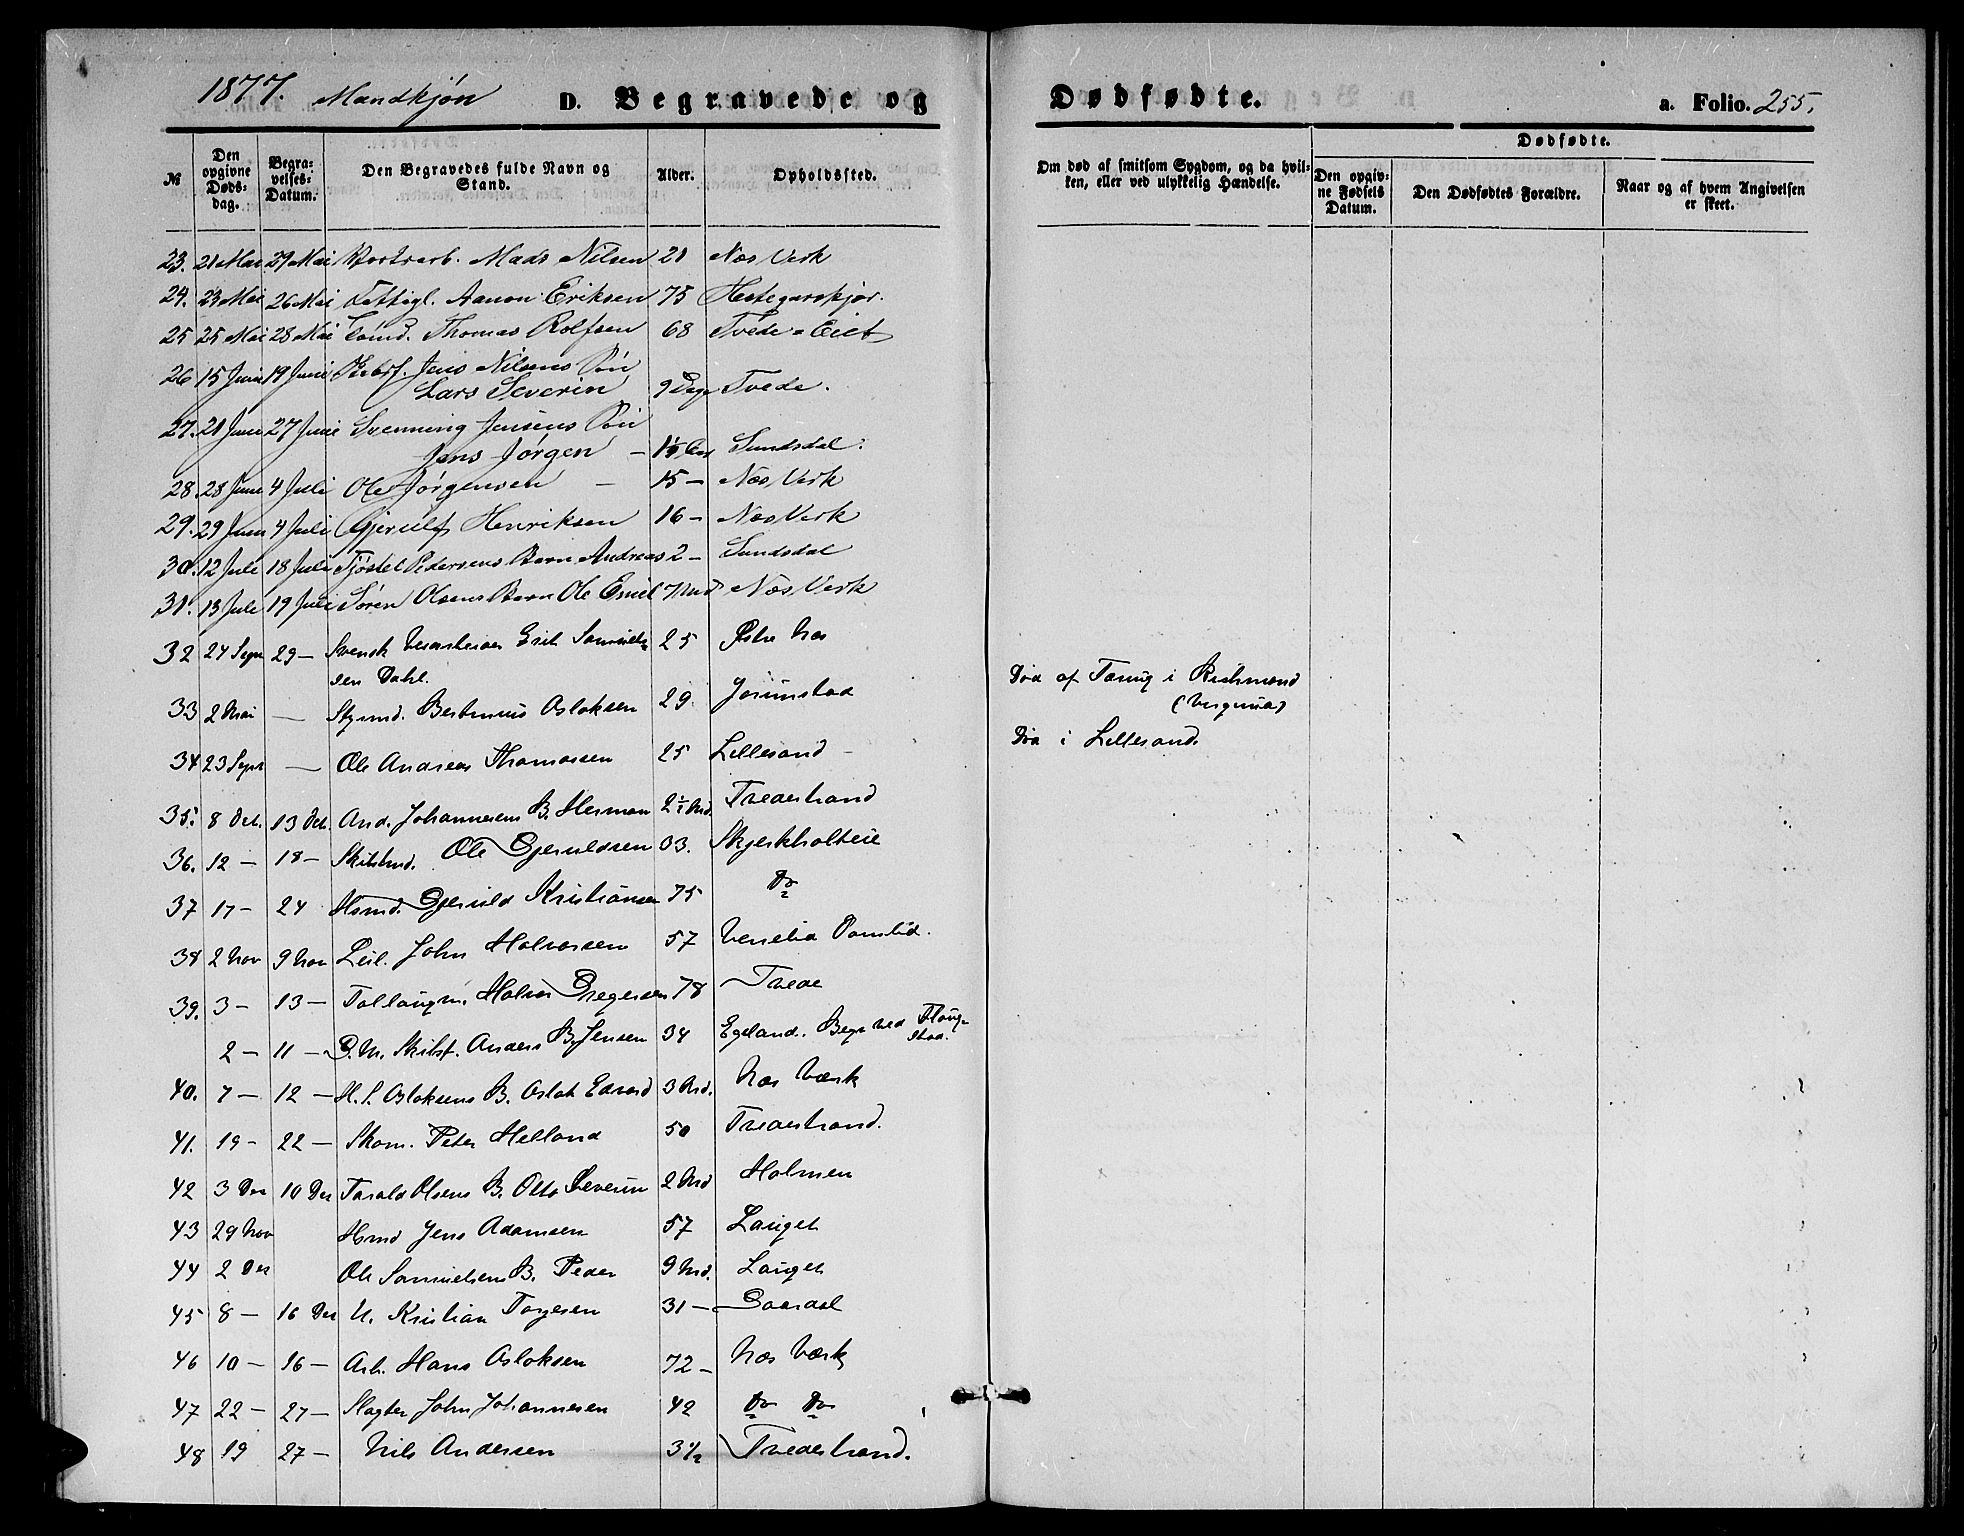 1877. Mandkjøn D. Begravede og Dødfødte. a. Folio. 255.
№ | Den opgivne Døds-dag. | Begra-velses-Datum. | Den Begravedes fulde Navn og Stand. | Alder. | Opholdssted. | Om død af smitsom Sygdom, og da hvil-ken, eller ved ulykkelig Hændelse. | Dødfødte. | Den opgiv-ne Fødsels Datum. | Den Dødfødtes Forældre. | Naar og af hvem Angivelsen er skeet.
23. 21 Mai 29 Mai Mads Nilsen 21 Næs Verk
24. 23 Mai 26 Mai Aanon Eriksen 75
25 25 Mai 28 Mai Thomas Rolfsen 68 Tvede-Eiet
26 15 Juni 19 Juni Jens Nilsens Søn
Lars Severin 9 Dage Tvede.
27. 21 Juni 27 Juni Svenning Jensens Søn
Jens Jørgen – Sundsdal.
28. 28 Juni 4 Juli Ole Jørgensen – 15 – Næs Verk
29. 29 Juni 4 Juli Gjerulf Henriksen 16 – Næs Verk
30. 12 Juli 18 Juli Tjøstel Pedersens Barn Andreas 2 – Sundsdal
31. 13 Juli 19 Juli Søren Olsens Barn Ole Emil 7 Md Næs Verk
32 24 Sept 29 – Svensk Erik Samuels-
sen Dahl. 25 Østre Næs
33 2 Mai — Styrmd. Bertinius Aslaksen 29. Jorunstad Død af Tæring i Richmond
(Virginia)
34 23 Sept — Ole Andreas Thomassen 25 Lillesand – Død i Lillesand.
35. 8 Oct. 13 Oct. And. Johannesens B. Herman 2½ Md. Tvedestrand
36. 12 – 18 – Skibstmd. Ole Gjeruldsen 33. Skjerkholteie
37 17 – 24 Hsmd. Gjeruld Kristiansen 75 Do
38 2 Nov 9 Nov Leil. John Halvorsen 57 Venelia
39. 3 – 13 – Halvor Gregersen 78 Tvede
2 – 11 – Skibst. Anders B. Jensen 34 Egeland. Begr ved Flaug-
stad.
40. 7 – 12 – H. S. Aslaksens B. Aslak Edvard 3 Md. Næs Værk
41. 19 – 22 – Skom. Peter Helland 50 Tvedestrand.
42 3 Dec 10 Dec Tarald Olsens B. Otto Severin 2 Md Holmen
43 29 Nov Hsmd Jens Adamsen 57 Lauget
44 2 Dec Ole Samuelsens B. Peder 9 Md. Lauget
45 8 – 16 Dec U. Kristian Torjesen 31 – Goderdal
46 10 – 16 – Arb. Hans Aslaksen 72 – Næs Værk
47 22 – 27 – Slagter John Johannesen 42 Do Do
48 19 27 – Nils Andersen 3½ Tvedestrand.